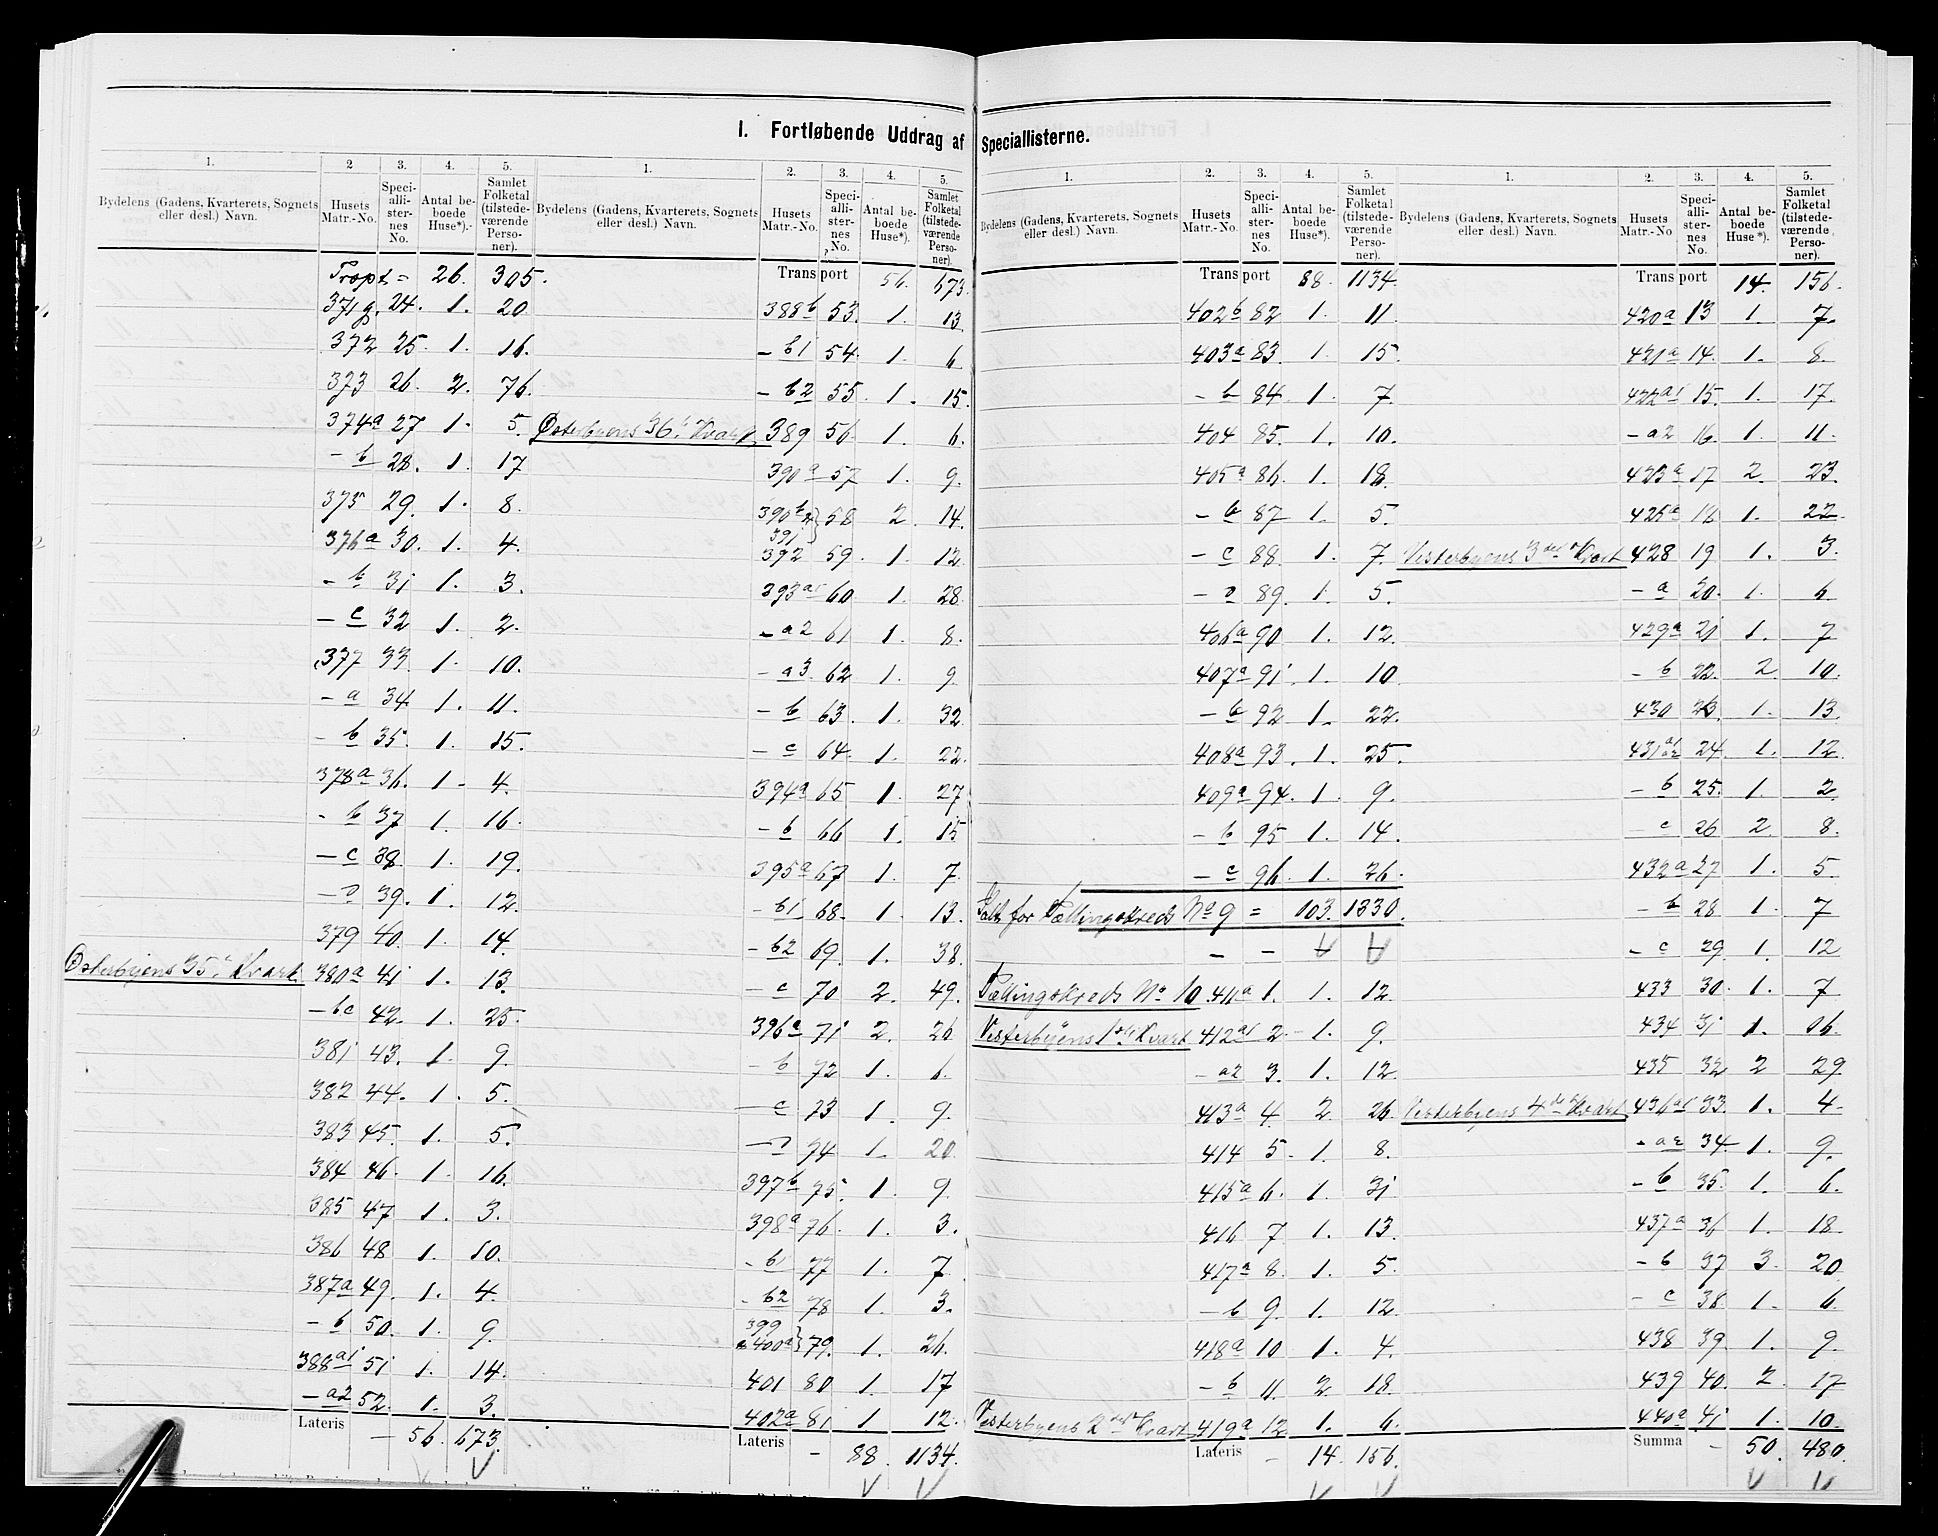 I. Fortløbende Uddrag af Speciallisterne.
1. 2 3. 4. 5.
Bydelens (Gadens, Kvarterets, Sognets eller desl.) Navn. Husets Matr.-No. Speci-alli-ster-nes No. Antal be-boede Huse*). Samlet Folketal (tilstede-værende Perso-ner).
Trspt = 26. 305.
371g. 24. 1. 20
372 25. 1. 16.
373 26. 2. 76.
374a 27 1. 5.
- b 28. 1. 17
375 29. 1. 8.
376a 30. 1. 4.
- b 31 1. 3.
- c 32 1. 2.
377 33 1. 10.
- a 34 1. 11.
- b 35 1. 15.
378a 36. 1. 4.
- b 37 1. 16.
- c 38 1. 19.
- d 39. 1. 12.
379 40. 1. 14.
Østerbyens 35. Kvart. 380a 41 1. 13.
- bc 42. 1. 25.
381 43. 1. 9.
382 44. 1. 5.
383 45. 1. 5.
384 46. 1. 16.
385 47 1. 3.
386 48 1. 10.
387a 49. 1. 4.
- b 50. 1. 9.
388a1 51 1. 14.
- a2 52. 1. 3.
Lateris - 56. 673.
1. 2. 3. 4. 5.
Bydelens (Gadens, Kvarterets, Sognets eller desl.) Navn. Husets Matr.-No. Speci-alli-ster-nes No. Antal be-boede Huse*). Samlet Folketal (tilstede-værende Perso-ner).
Transport 56. 673.
388b 53. 1. 13.
- b1 54. 1. 6
- b2 55. 1. 15.
Østerbyens 36. Kvart. 389 56. 1. 6.
390a 57 1. 9.
390b2 391 } 58 2. 14.
392 59. 1. 12.
393a1 60. 1. 28
- a2 61 1. 8.
- a3 62 1. 9
- b 63. 1. 32
- c 64. 1. 22.
394a 65 1. 27
- b 66 1. 15
395a 67 1. 7
- b1 68. 1. 13.
- b2 69. 1. 38.
- c 70 2. 49.
396a 71 2. 26
- b 72 1. 6.
- c 73 1. 9.
- d 74 1. 20.
397b 75. 1. 9
398a 76. 1. 3.
- b1 77 1. 7
- b2 78 1. 3.
399 400a } 79. 1. 26.
401 80 1. 17
402a 81 1. 12.
Lateris - 88. 1134.
1. 2. 3. 4. 5.
Bydelens (Gadens, Kvarterets, Sognets eller desl.) Navn. Husets Matr.-No. Speci-alli-ster-nes No. Antal be-boede Huse*). Samlet Folketal (tilstede-værende Perso-ner).
Transport 88. 1134.
402b 82 1. 11.
403a 83. 1. 15.
- b 84. 1. 7.
404 85. 1. 10.
405a 86. 1. 18.
- b 87 1. 5.
- c 88. 1. 7.
- d 89. 1. 5.
406a 90 1. 12.
407a 91. 1. 10
- b 92 1. 22.
408a 93. 1. 25.
409a 94. 1. 9.
- b 95 1. 14.
- c 96. 1. 26.
Ialt for Tællingskreds No 9 = 103. 1330.
- -
Tællingskreds No 10. 411a 1. 1. 12.
Vesterbyens 1ste Kvart 412a1 2. 1. 9.
- a2 3. 1. 12.
413a 4. 2. 26.
414 5. 1. 8.
415a 6. 1. 31
416 7 1. 13.
417a 8. 1. 5.
- b 9. 1. 12.
418a 10 1. 4.
- b 11. 2. 18.
Vesterbyens 2den Kvart 419a 12. 1. 6.
Lateris - 14. 156.
1. 2. 3. 4. 5.
Bydelens (Gadens, Kvarterets, Sognets eller desl.) Navn. Husets Matr.-No. Speci-alli-ster-nes No. Antal be-boede Huse*). Samlet Folketal (tilstede-værende Perso-ner).
Transport 14. 156.
420a 13 1. 7.
421a 14. 1. 8.
422a1 15. 1. 17.
- a2 16. 1. 11.
423a 17 2. 23.
425a 18 1. 22.
Vesterbyens 3die Kvart 428 19 1. 3.
- a 20. 1. 6.
429a 21 1. 7
- b 22. 2 10.
430 23. 1. 13.
431 24. 1. 12.
- b 25. 1. 2.
- c 26 2. 8.
432a 27 1. 5.
- b 28 1. 7
- c 29. 1. 12
433 30. 1. 7
434 31 1. 16.
435 32 2 29.
Vesterbyens 4de Kvart 436a1 33. 1. 4.
- a2 34. 1. 9.
- b 35. 1. 6.
437a 36 1. 18
- b 37 3. 20
- c 38. 1. 6.
438 39. 1. 9.
439 40. 2. 17
440a 41 1. 10.
Summa - 50. 480.